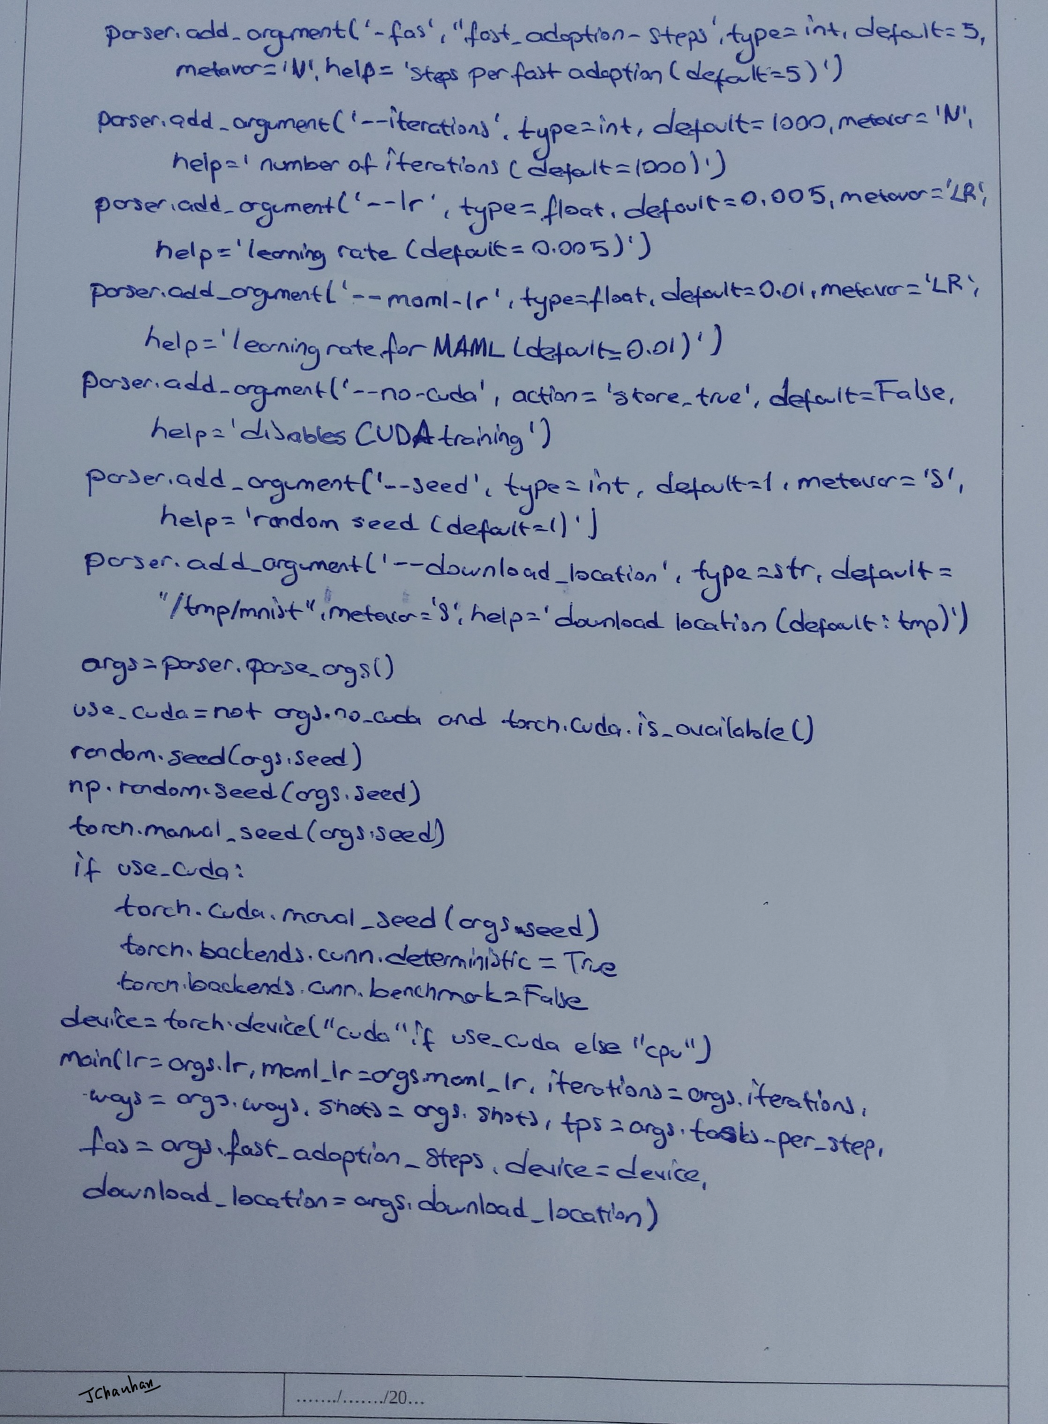 parser.add_argument('-fas', "fast_adaption-steps', type=int, default=5,
metavar='N', help='steps per fast adaption (default=5)')
parser.add_argument('--iterations', type=int, default=1000, metavar='N',
help='number of iterations (default=1000)')
parser.add_argument('--lr', type=float, default=0.005, metavar='LR',
help='learning rate (default=0.005)')
parser.add_argument('--maml-lr', type=float, default=0.01, metavar='LR',
help='learning rate for MAML (default=0.01)')
parser.add_argument('--no-cuda', action='store_true', default=False,
help='disables CUDA training')
parser.add_argument('--seed', type=int, default=1, metavar='S',
help='random seed (default=1)')
parser.add_argument('--download_location', type=str, default=
"/tmp/mnist", metavar='S', help='download location (default: tmp)')
args=parser.parse_args()
use_cuda=not args.no_cuda and torch.cuda.is_available()
random.seed(args.seed)
np.random.seed(args.seed)
torch.manual_seed(args.seed)
if use_cuda:
torch.cuda.manual_seed(args.seed)
torch.backends.cunn.deterministic = True
torch.backends.cunn.benchmark=False
device=torch.device("cuda" if use_cuda else "cpu")
main(lr=args.lr, maml_lr=args.maml_lr, iterations=args.iterations,
ways=args.ways, shots=args.shots, tps=args.tasks-per_step,
fas=args.fast_adaption_steps, device=device,
download_location=args.download_location)
JChauhan
......./......./20...